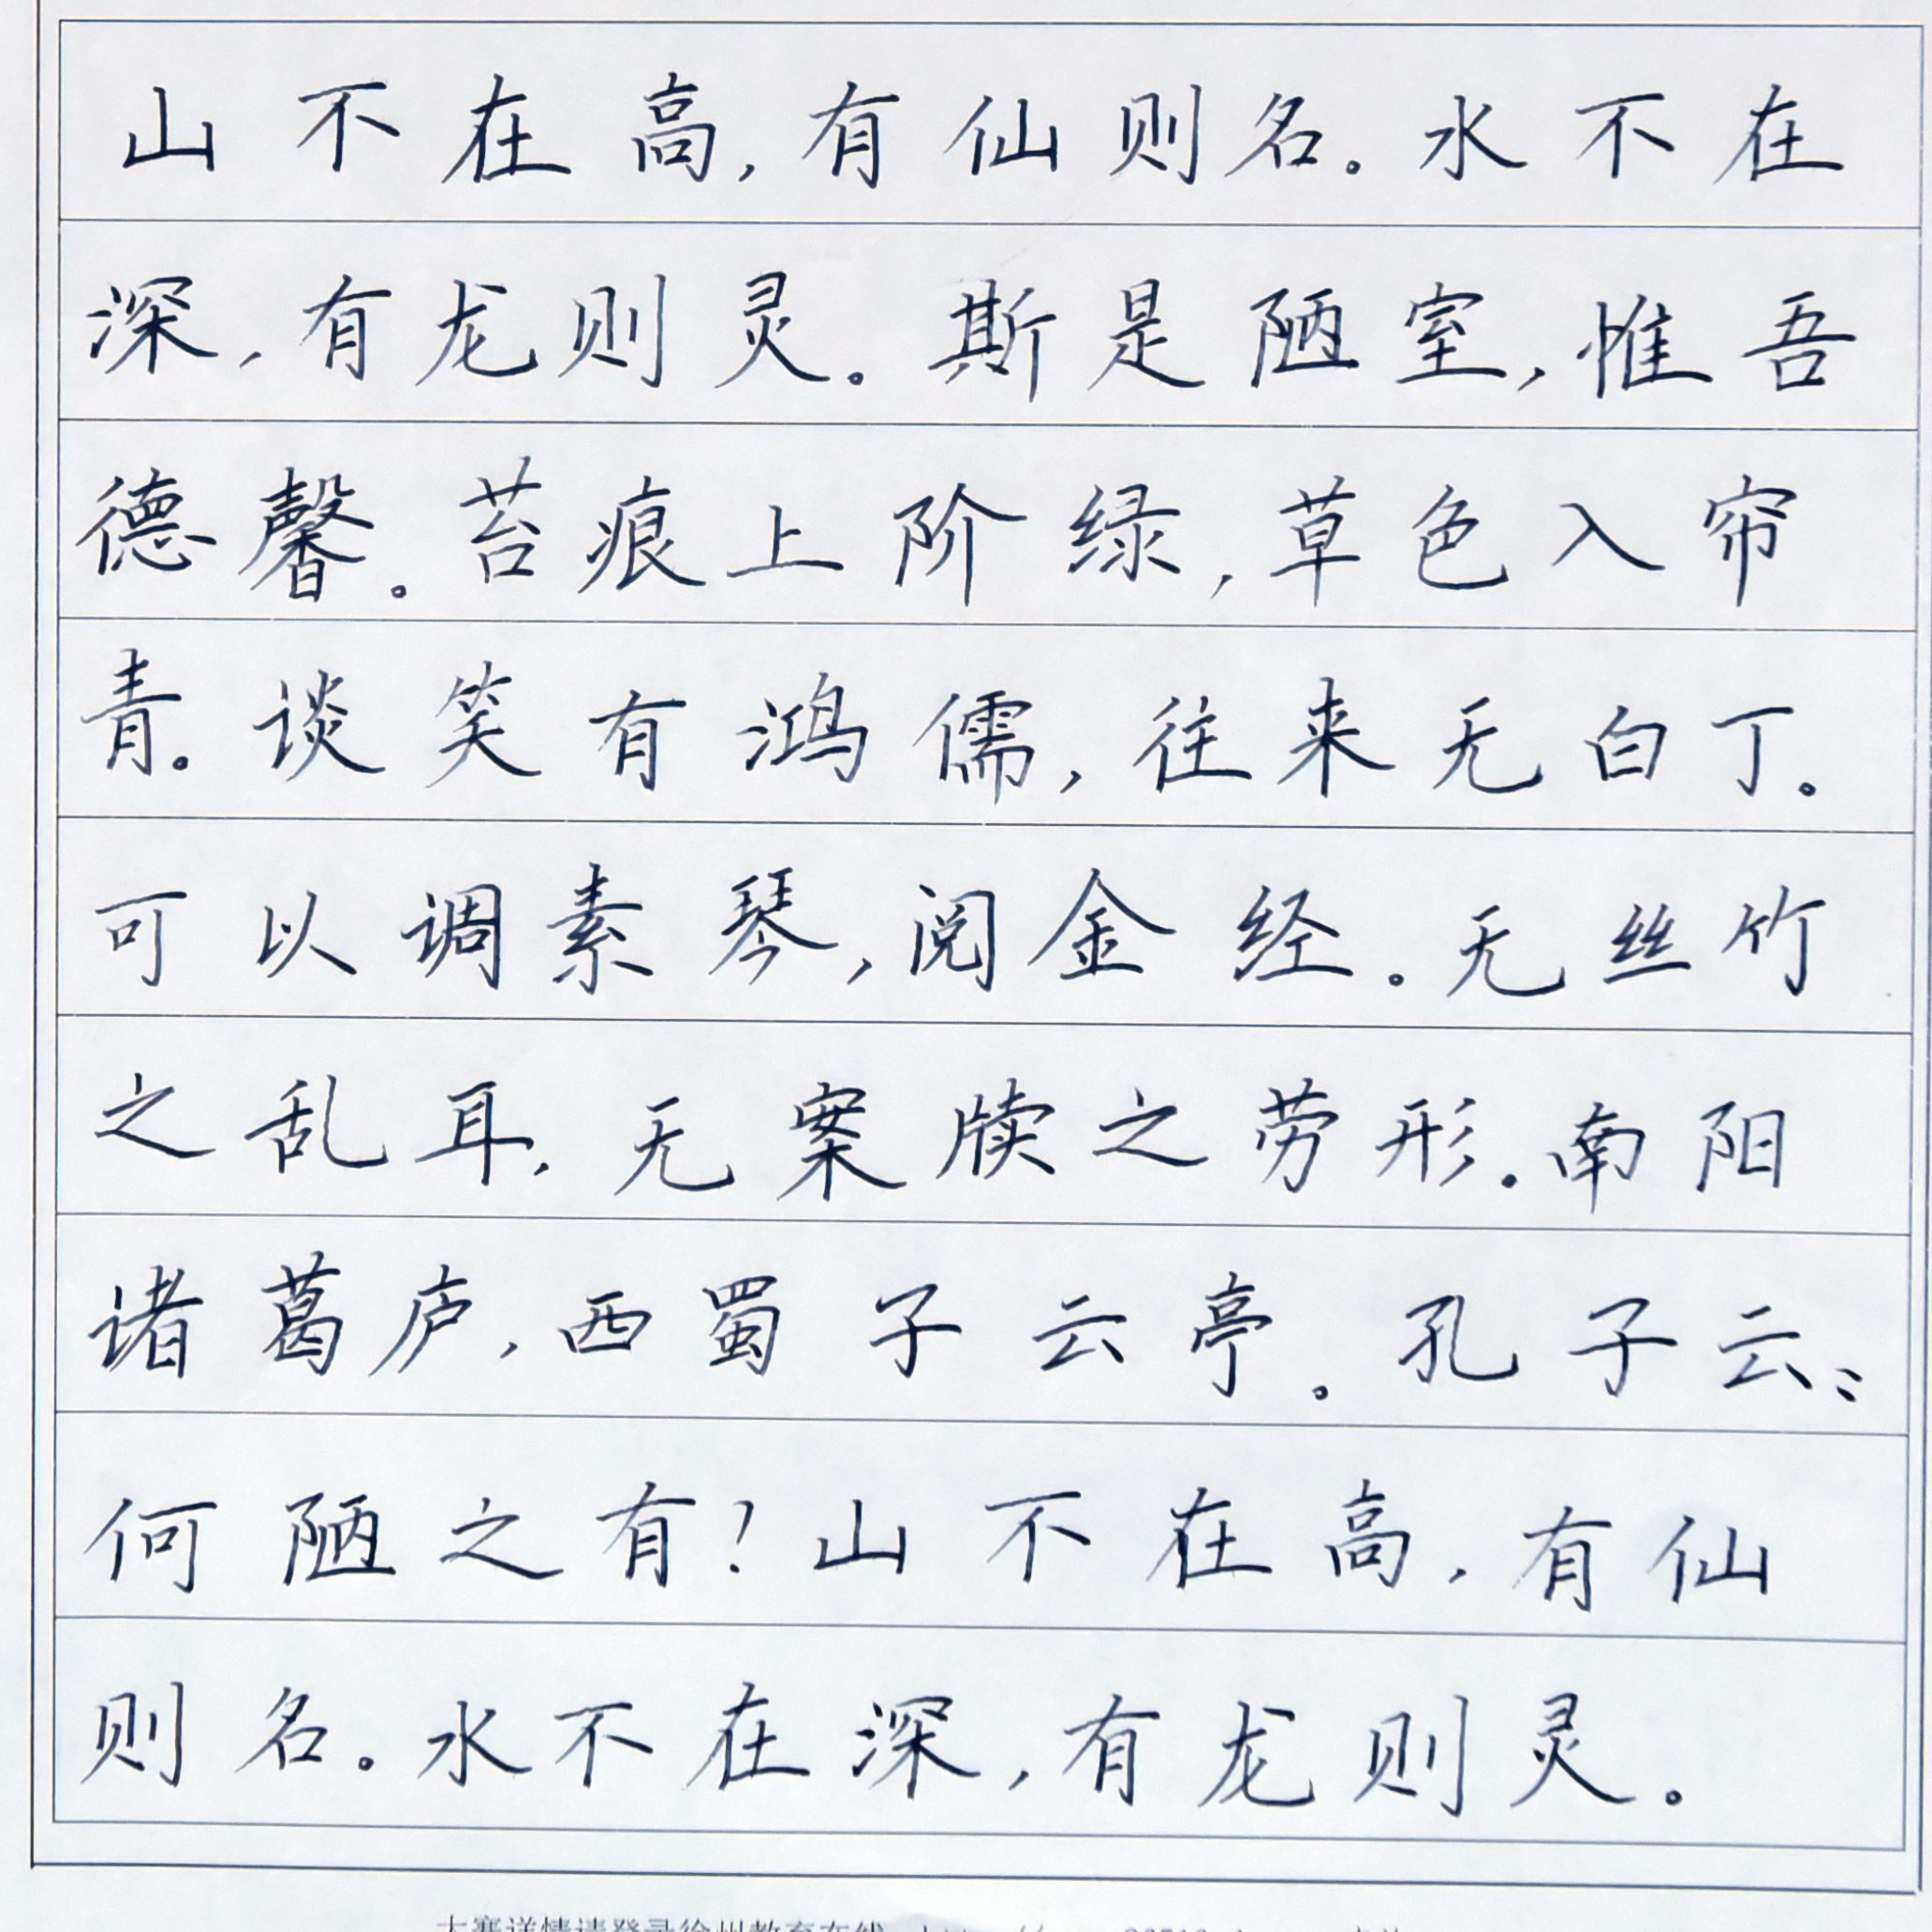 山不在高,有仙则名。水不在
深,有龙则灵。斯是陋室,惟吾
德馨。苔痕上阶绿,草色入帘
青。谈笑有鸿儒,往来无白丁。
可以调素琴,阅金经。无丝竹
之乱耳,无案牍之劳形。南阳
诸葛庐,西蜀子云亭。孔子云:
何陋之有?山不在高,有仙
则名。水不在深,有龙则灵。